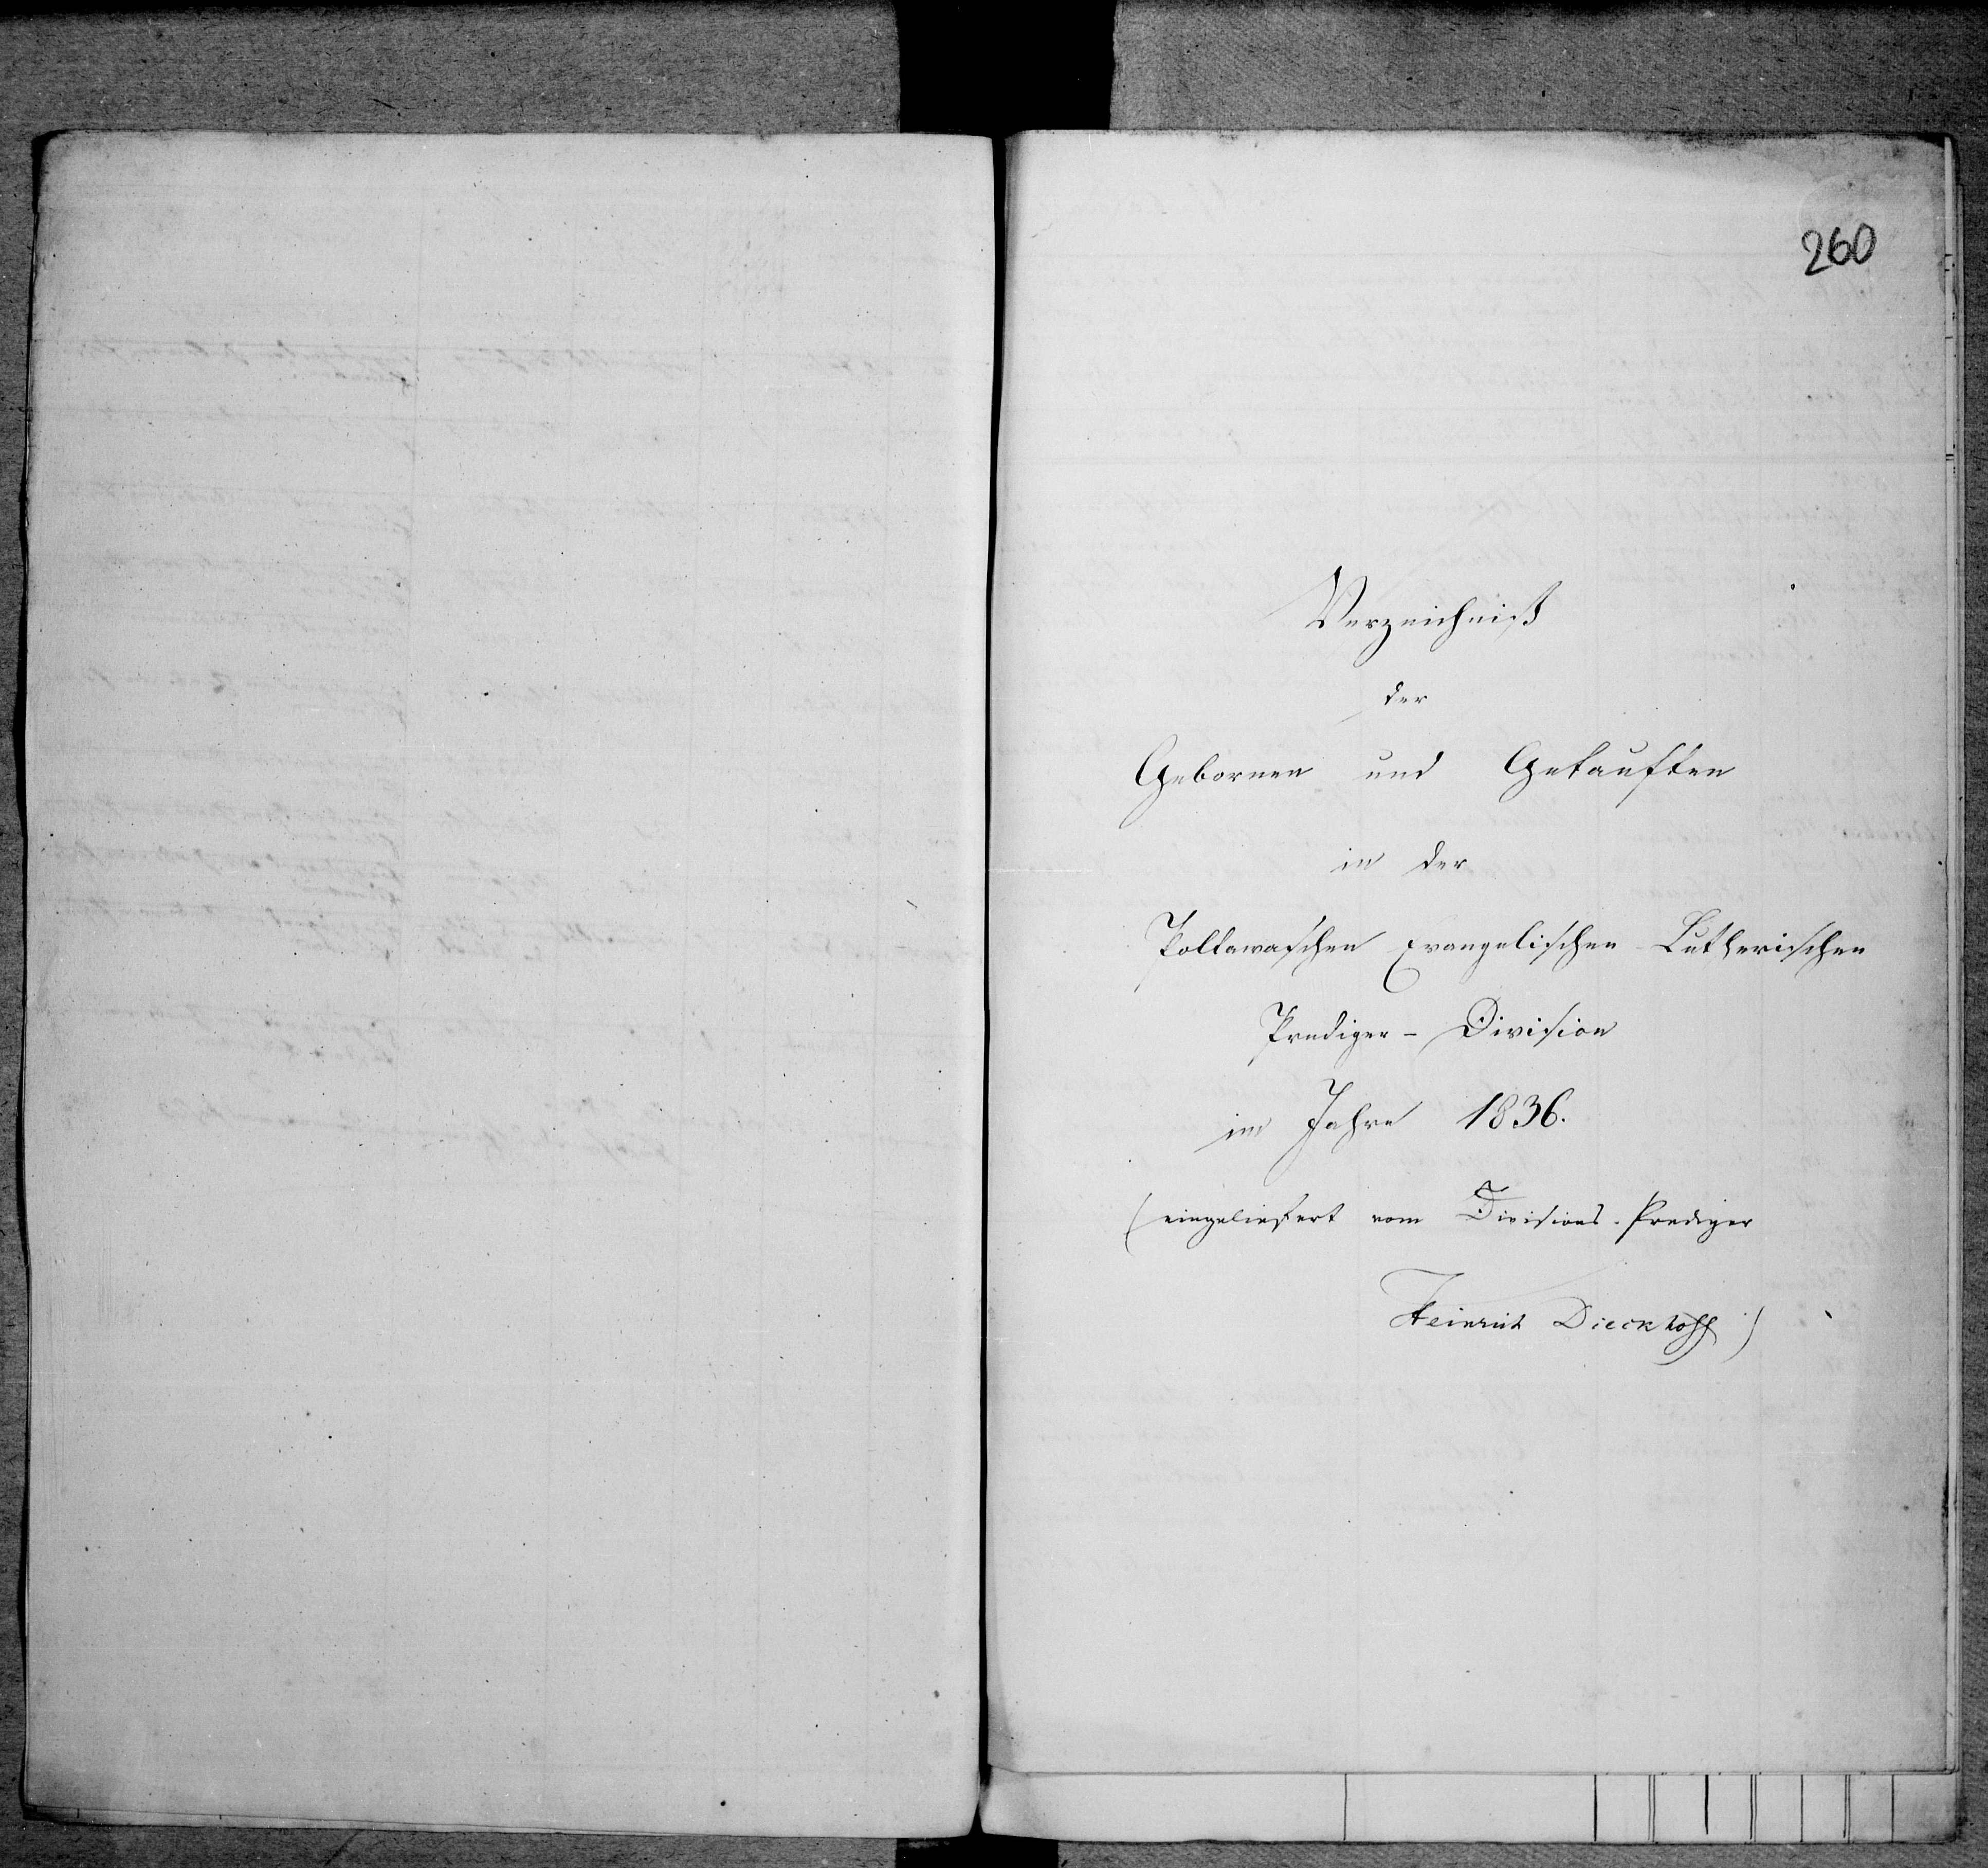 260
Verzeichniß
der
Gebornen und Getauften
in der
Poltawaschen Evangelischen Lutherischen
Prediger-Division
im Jahre 1836.
(eingeliefert vom Divisions-Prediger
Heinrich Dieckhoff)